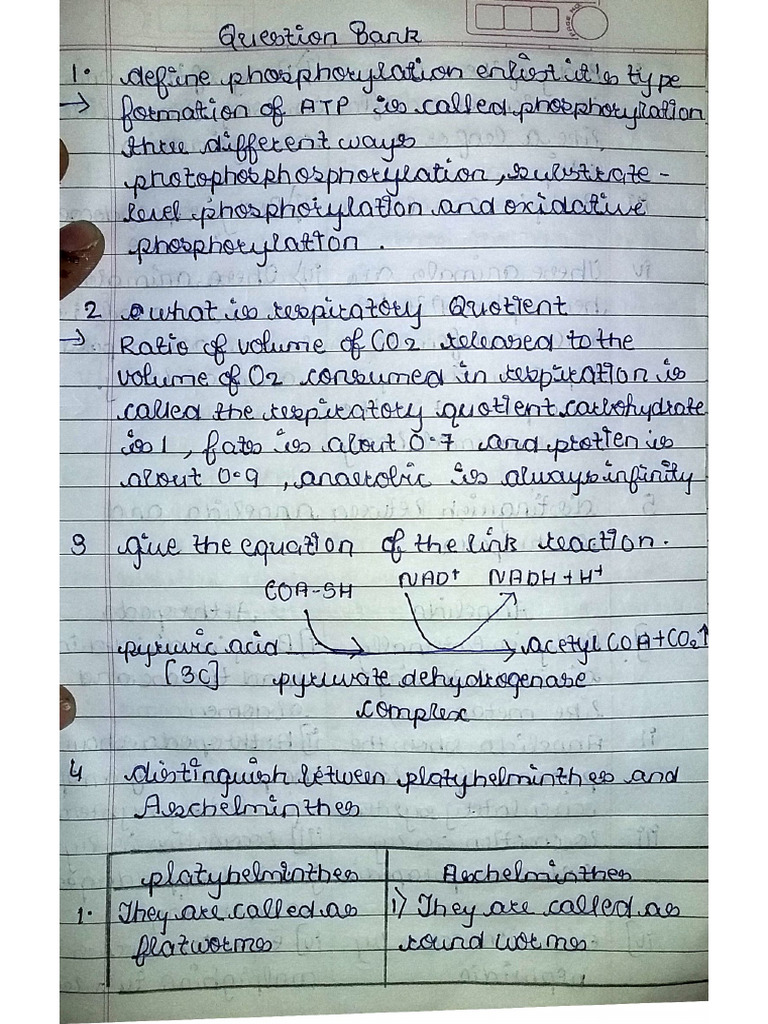 Question Bank
1. define phosphorylation enlist it's type
→ formation of ATP is called phosphorylation
three different ways
photophosphosphorylation, substrate -
level phosphorylation and oxidative
phosphorylation.
2 what is respiratory Quotient
→ Ratio of volume of CO2 released to the
volume of O2 consumed in respiration is
called the respiratory quotient carbohydrate
is 1, fats is about 0.7 and protien is
about 0.9, anaerobic is always infinity
3 give the equation of the link reaction.
COA-SH NAD+ NADH + H+
pyruvic acid → acetyl COA + CO2↑
[3C] pyruvate dehydrogenase
complex
4 distinguish between platyhelminthes and
Aschelminthes
platyhelminthes Aschelminthes
1. They are called as 1) They are called as
flatworms round worms.